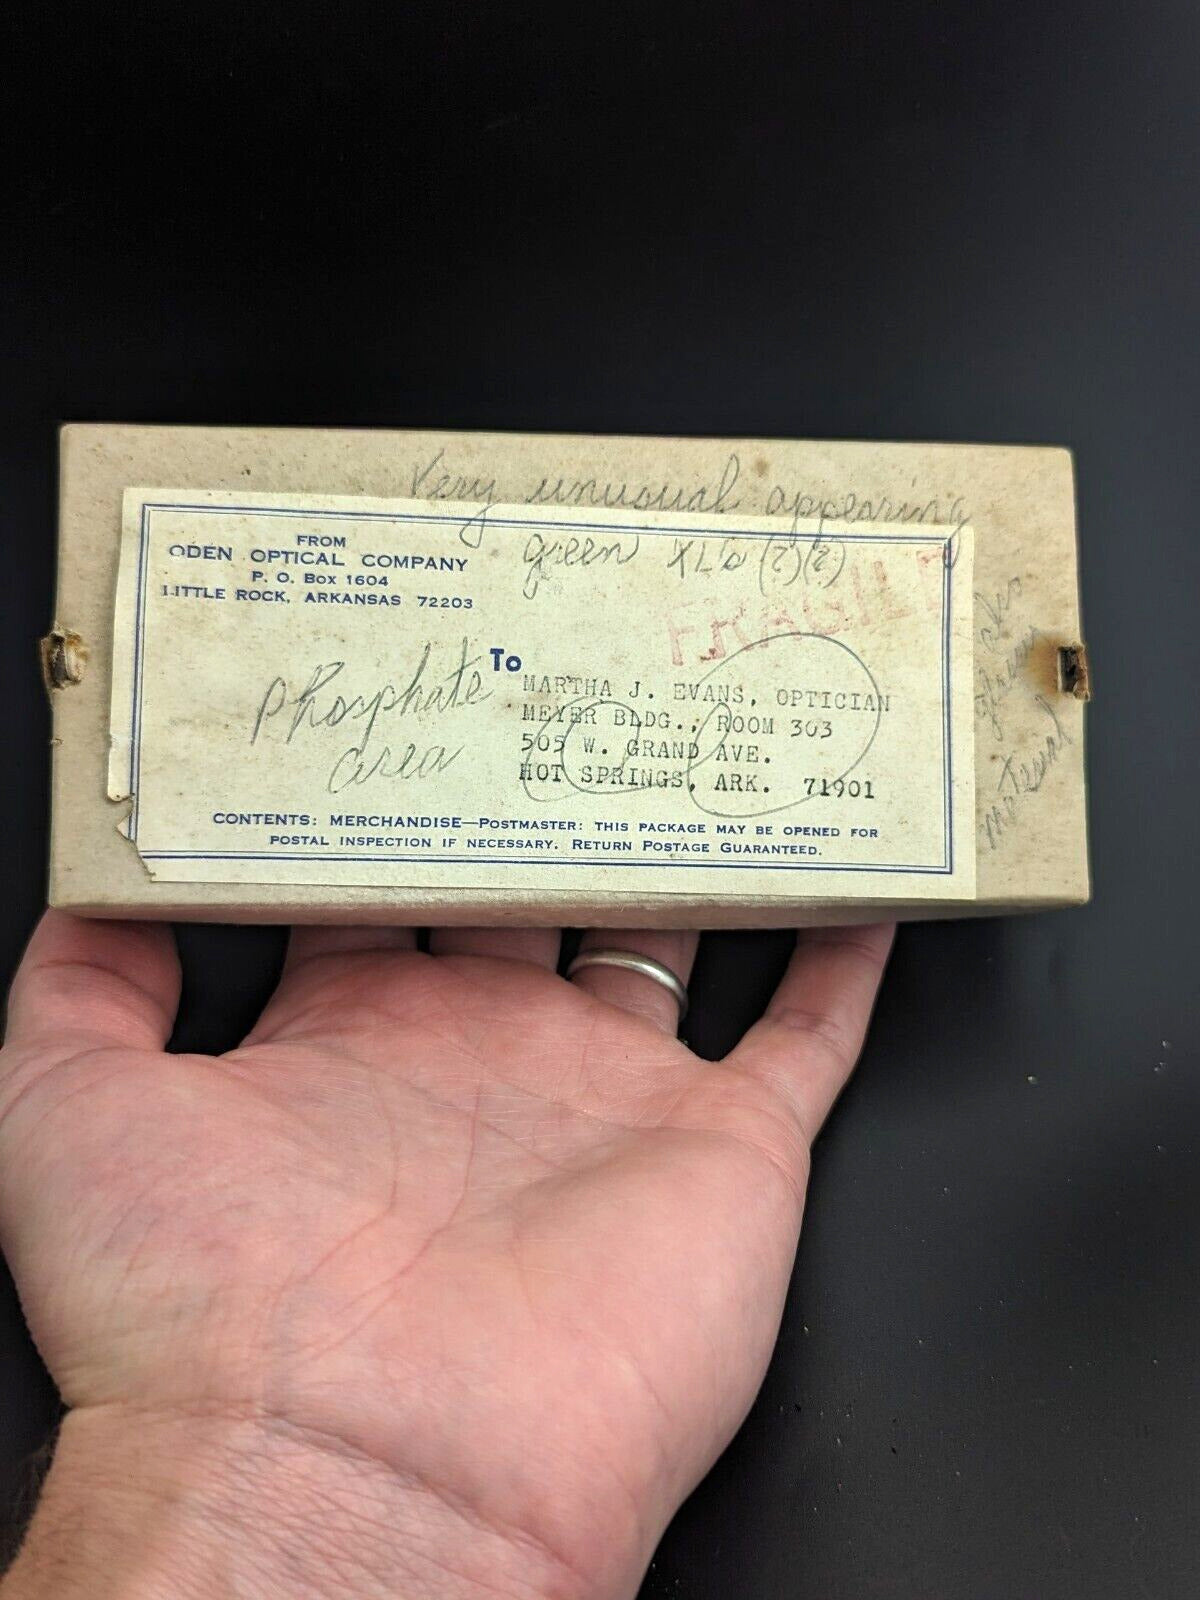 Very unusual appearing
green XLs (?)(?)
FROM
ODEN OPTICAL COMPANY
P. O. Box 1604
LITTLE ROCK, ARKANSAS 72203
FRAGILE
Phosphate
area
To
MARTHA J. EVANS, OPTICIAN
MEYER BLDG., ROOM 303
505 W. GRAND AVE.
HOT SPRINGS, ARK. 71901
CONTENTS: MERCHANDISE—POSTMASTER: THIS PACKAGE MAY BE OPENED FOR
POSTAL INSPECTION IF NECESSARY. RETURN POSTAGE GUARANTEED.
also
material